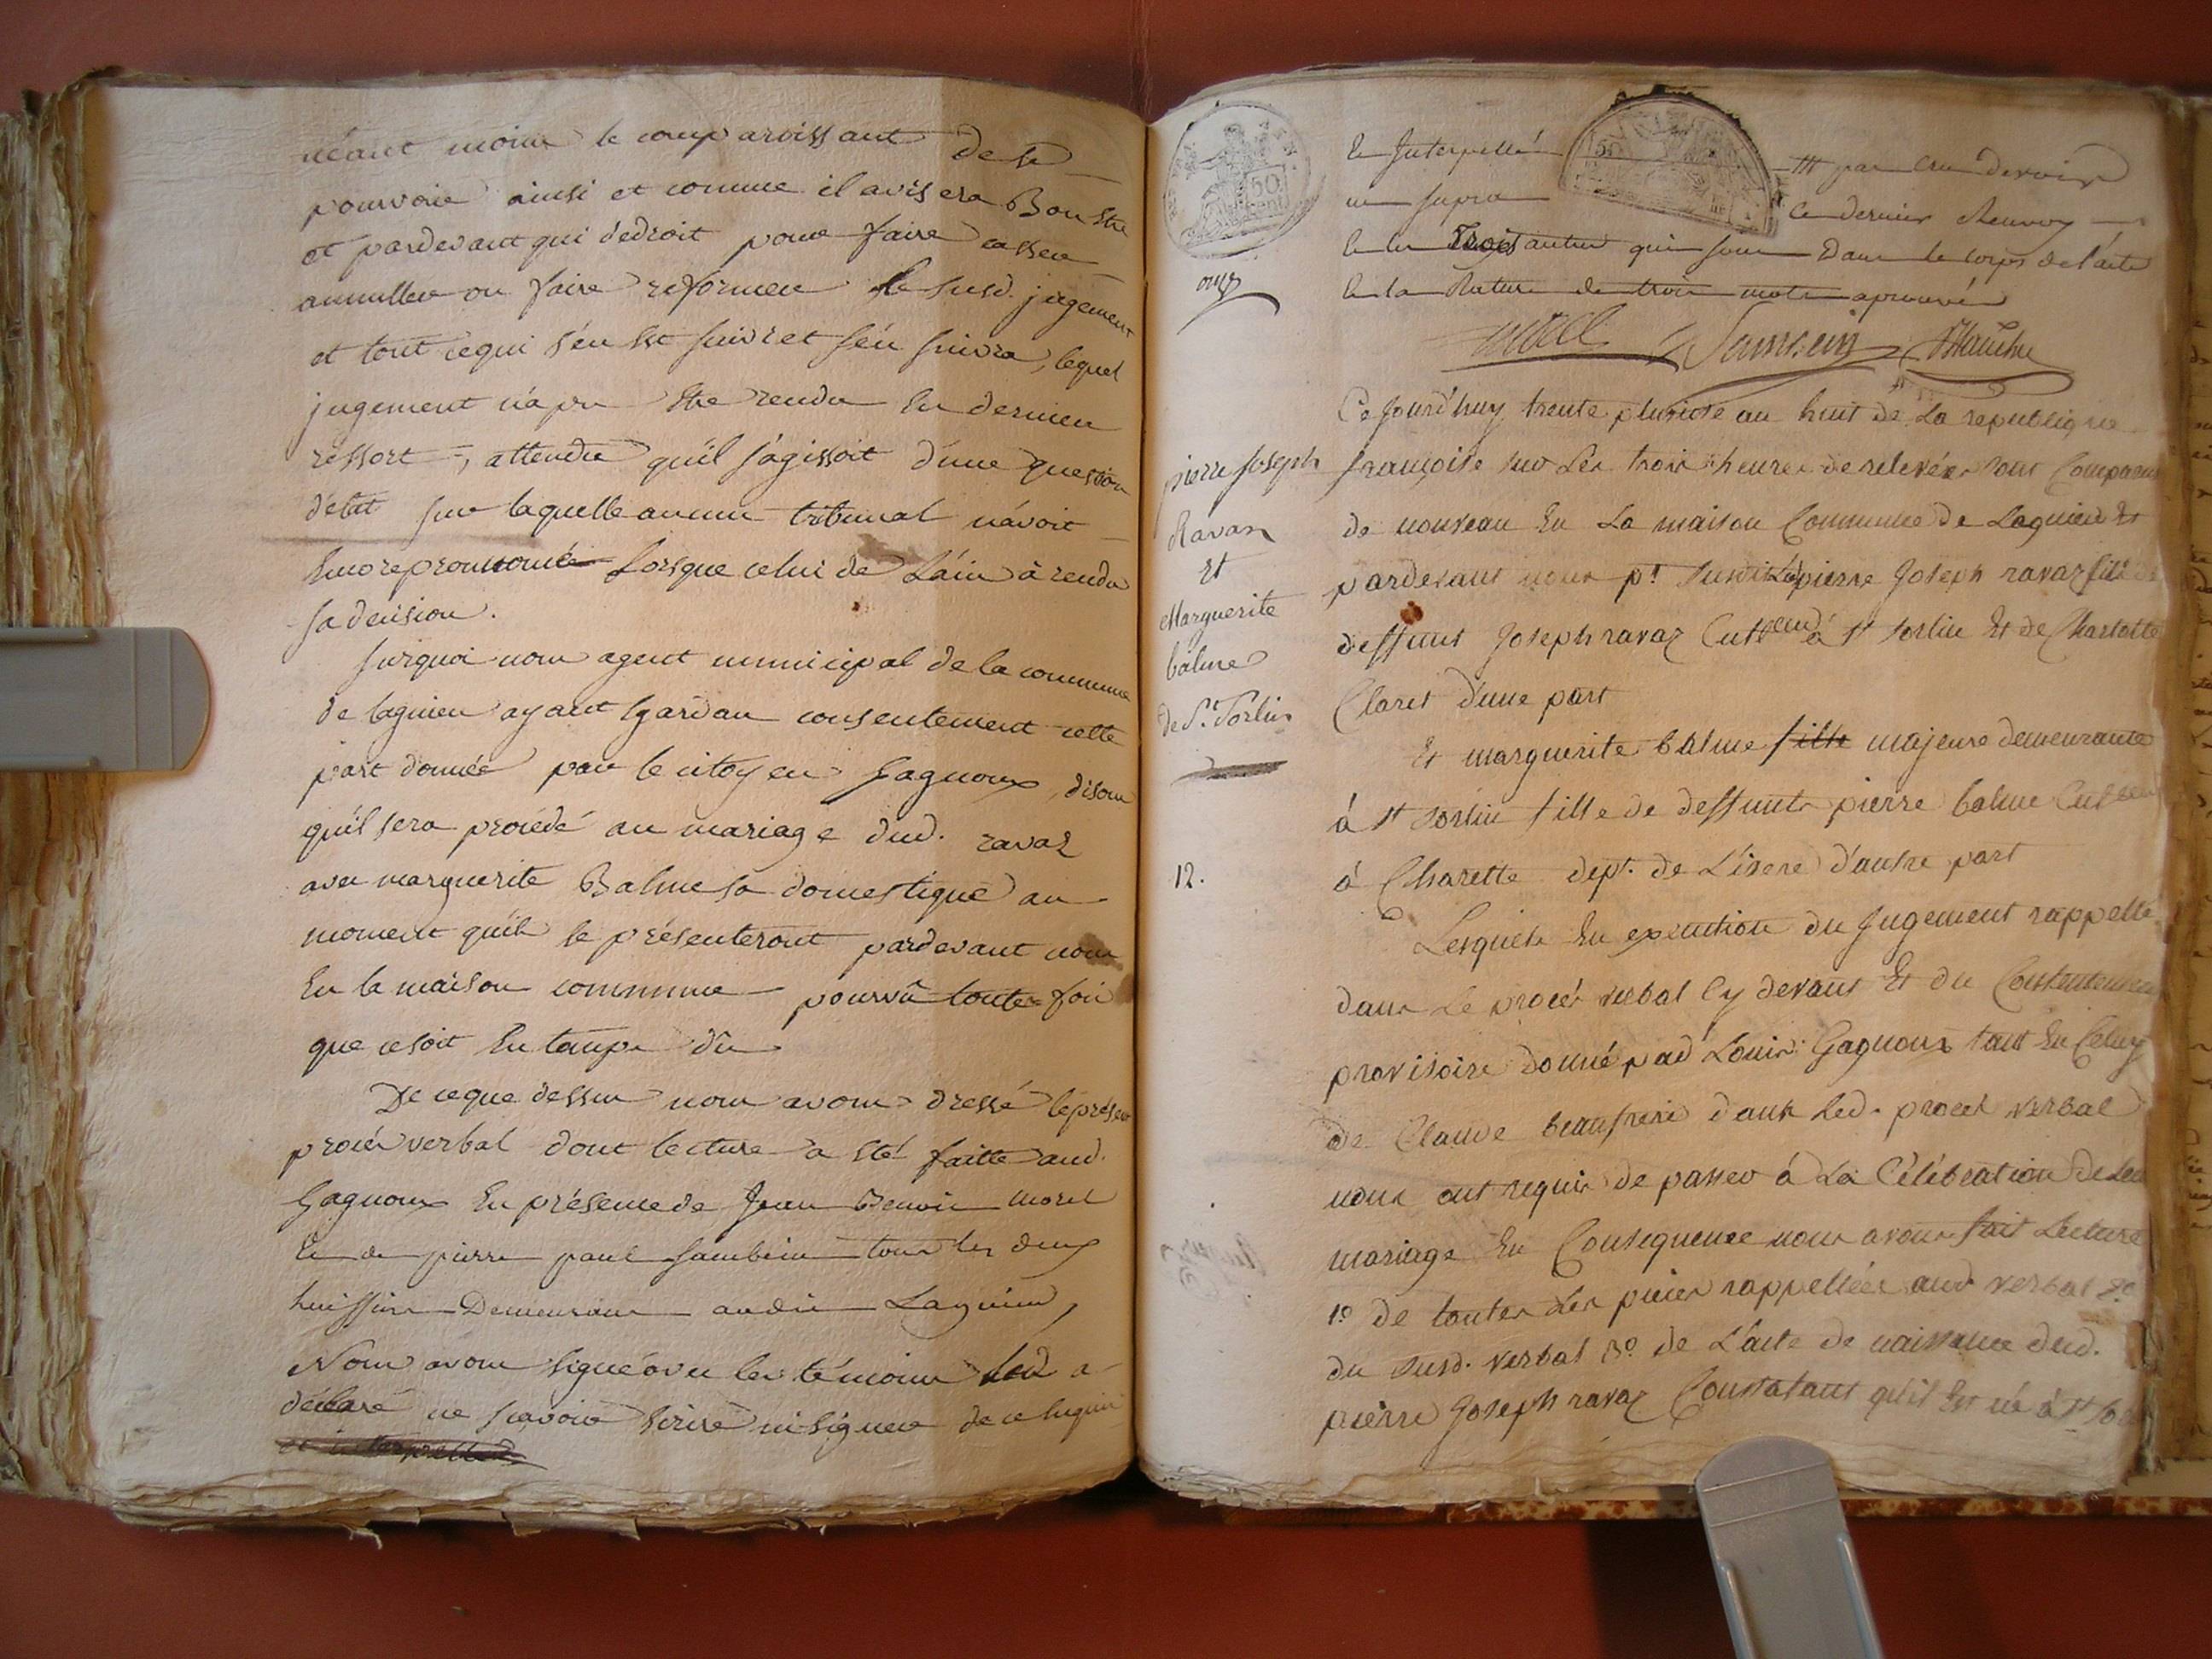 néant moins le comparoissant de se
pourvoir ainsi et comme il avisera Bon Etre
et pardevant qui dedroit pour faire casser
annuller ou faire reformer le susd. jugement
et tout cequi s'en est suivi et s'en suivra, lequel
jugement n'a pu Etre rendu En dernier
ressort =, attendu qu'il s'agissoit d'une question
d'état sur laquelle aucun tribunal n'avoit
Encore prononcé Lorsque celui de L'ain à rendu
sa decision.
surquoi nous agent municipal de la commune
de lagnieu ayant Egard au consentement cette
part donnée par le citoyen Gagnoux, disons
qu'il sera procédé au mariage dud. ravaz
avec marguerite Balme sa domestique au
moment qu'ils se présenteront pardevant nous
En la maison commune pourvû toutes fois
que cesoit En temps dû
De ceque dessus nous avons dressé leprésent
procès verbal dont lecture a Eté faitte aud.
Gagnoux En présence de Jean Benoit morel
Et de pierre paul sambein tous les deux
huissiers Demeurans audit Lagnieu,
Nous avons signé avec les témoins Led a
déclaré ne sçavoir Ecrire ni signer de ce Enquis
Et Interpellé
ut supra
par cru devoir
ce dernier Renvoy
Et les Trois autres qui sont Dans le corps de l'acte
Et la Rature de trois mots aprouvés
onze
morel Sambein
Ce Jourd'huy trente pluviose an huit de La republique
pierre Joseph
Ravaz
Et
Marguerite
balme
de St. Sorlin
12.
françoise sur Les trois heures de relevée sont Comparus
de nouveau En La maison Commune de Lagnieu Et
pardevant nous pt. susdit Led pierre Joseph ravaz fils de
deffunt Joseph ravaz Cultr. à St Sorlin Et de Charlotte
Claret d'une part
Et marguerite balme fille majeure demeurante
à St Sorlin fille de deffunts pierre balme Cult
à Charette dept. de L'isere d'autre part
Lesquels En execution du Jugement rappellé
dans Le procès verbal Cy devant Et du Consentement
provisoire donné par Louis Gagnoux tant En Celuy
de Claude beaufrere dans Led. procès verbal
nous ont requis de passer à La Célébration de Leur
mariage En Consequence nous avons fait Lecture
1º de toutes Les pieces rappellées aud verbal 2º
du susd. verbal 3º de L'acte de naissance dud.
pierre Joseph ravaz Constatant qu'il Est né à St Sor